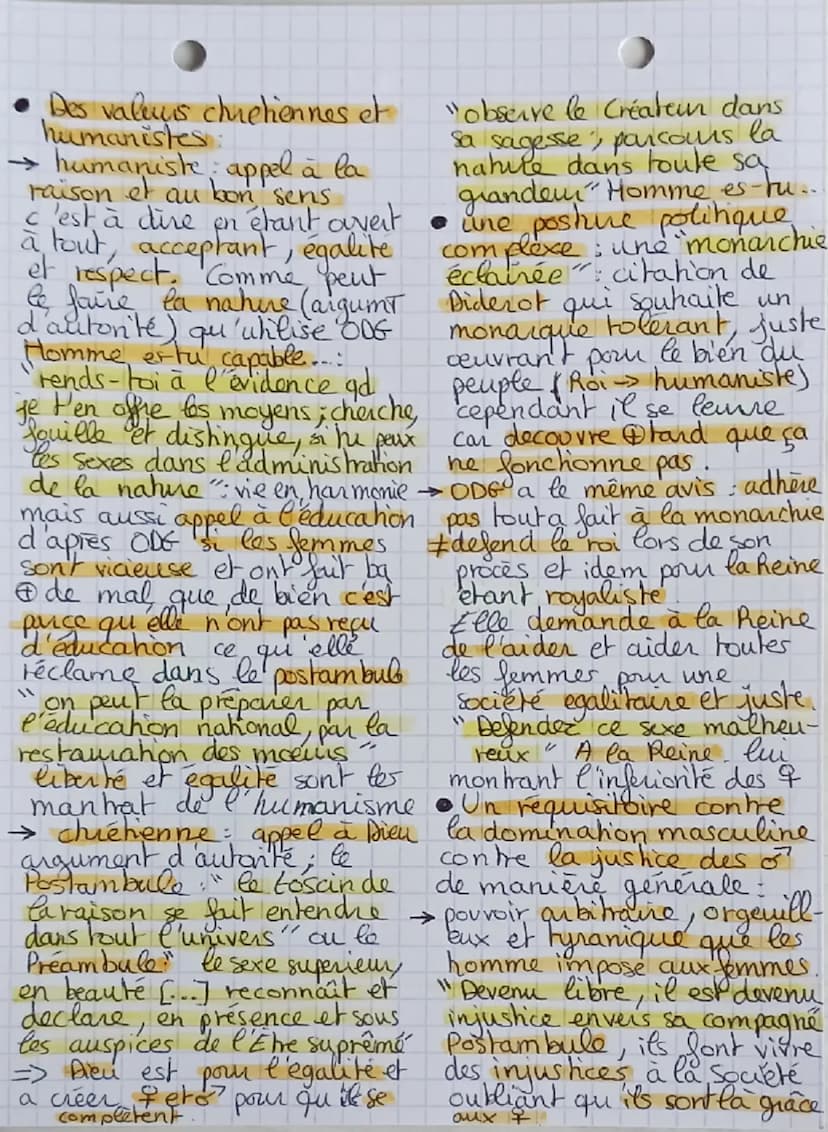 • Des valeurs chrétiennes et
humanistes :
→ humaniste : appel à la
raison et au bon sens
c'est à dire en étant ouvert
à tout, acceptant, égalité
et respect. Comme peut
le faire la nature (argumT
d'autorité) qu'utilise ODG
Homme es-tu capable... :
"rends-toi à l'évidence qd
je t'en offre les moyens ; cherche,
fouille et distingue, si tu peux
les sexes dans l'administration
de la nature" : vie en harmonie
mais aussi appel à l'éducation
d'après ODG si les femmes
sont vicieuse et ont fait bq
⊕ de mal que de bien c'est
parce qu'elle n'ont pas reçu
d'éducation ce qu'elle
réclame dans le postambule
"on peut la préparer par
l'éducation national, par la
restauration des mœurs"
liberté et égalité sont les
mantrat de l'humanisme
→ chrétienne : appel à Dieu
argument d'autorité ; le
Postambule : "le toscin de
la raison se fait entendre
dans tout l'univers" ou le
Préambule : "le sexe superieur,
en beauté [...] reconnaît et
declare, en présence et sous
les auspices de l'Être suprême"
=> Dieu est pour l'égalité et
a créer ♀ et ♂ pour qu'ils se
complètent.
"observe le Créateur dans
sa sagesse ; parcours la
nature dans toute sa
grandeur" Homme es-tu...
• une posture politique
complexe : une "monarchie
éclairée" : citation de
Diderot qui souhaite un
monarque tolérant, juste
œuvrant pour le bien du
peuple (Roi → humaniste)
cependant il se leurre
car decouvre ⊕ tard que ça
ne fonctionne pas.
→ ODG a le même avis : adhère
pas tout a fait à la monarchie
≠ defend le roi lors de son
procès et idem pour la Reine
étant royaliste.
Elle demande à la Reine
de l'aider et aider toutes
les femmes pour une
société egalitaire et juste.
"Defendez ce sexe malheu-
reux" A la Reine. lui
montrant l'inferiorité des ♀
• Un réquisitoire contre
la domination masculine
contre la justice des ♂
de manière générale :
→ pouvoir arbitraire, orgeuill-
eux et tyranique que les
homme impose aux femmes.
"Devenu libre, il est devenu
injustice envers sa compagne"
Postambule, ils font vivre
des injustices à la société
oubliant qu'ils sont la grâce
aux ♀.